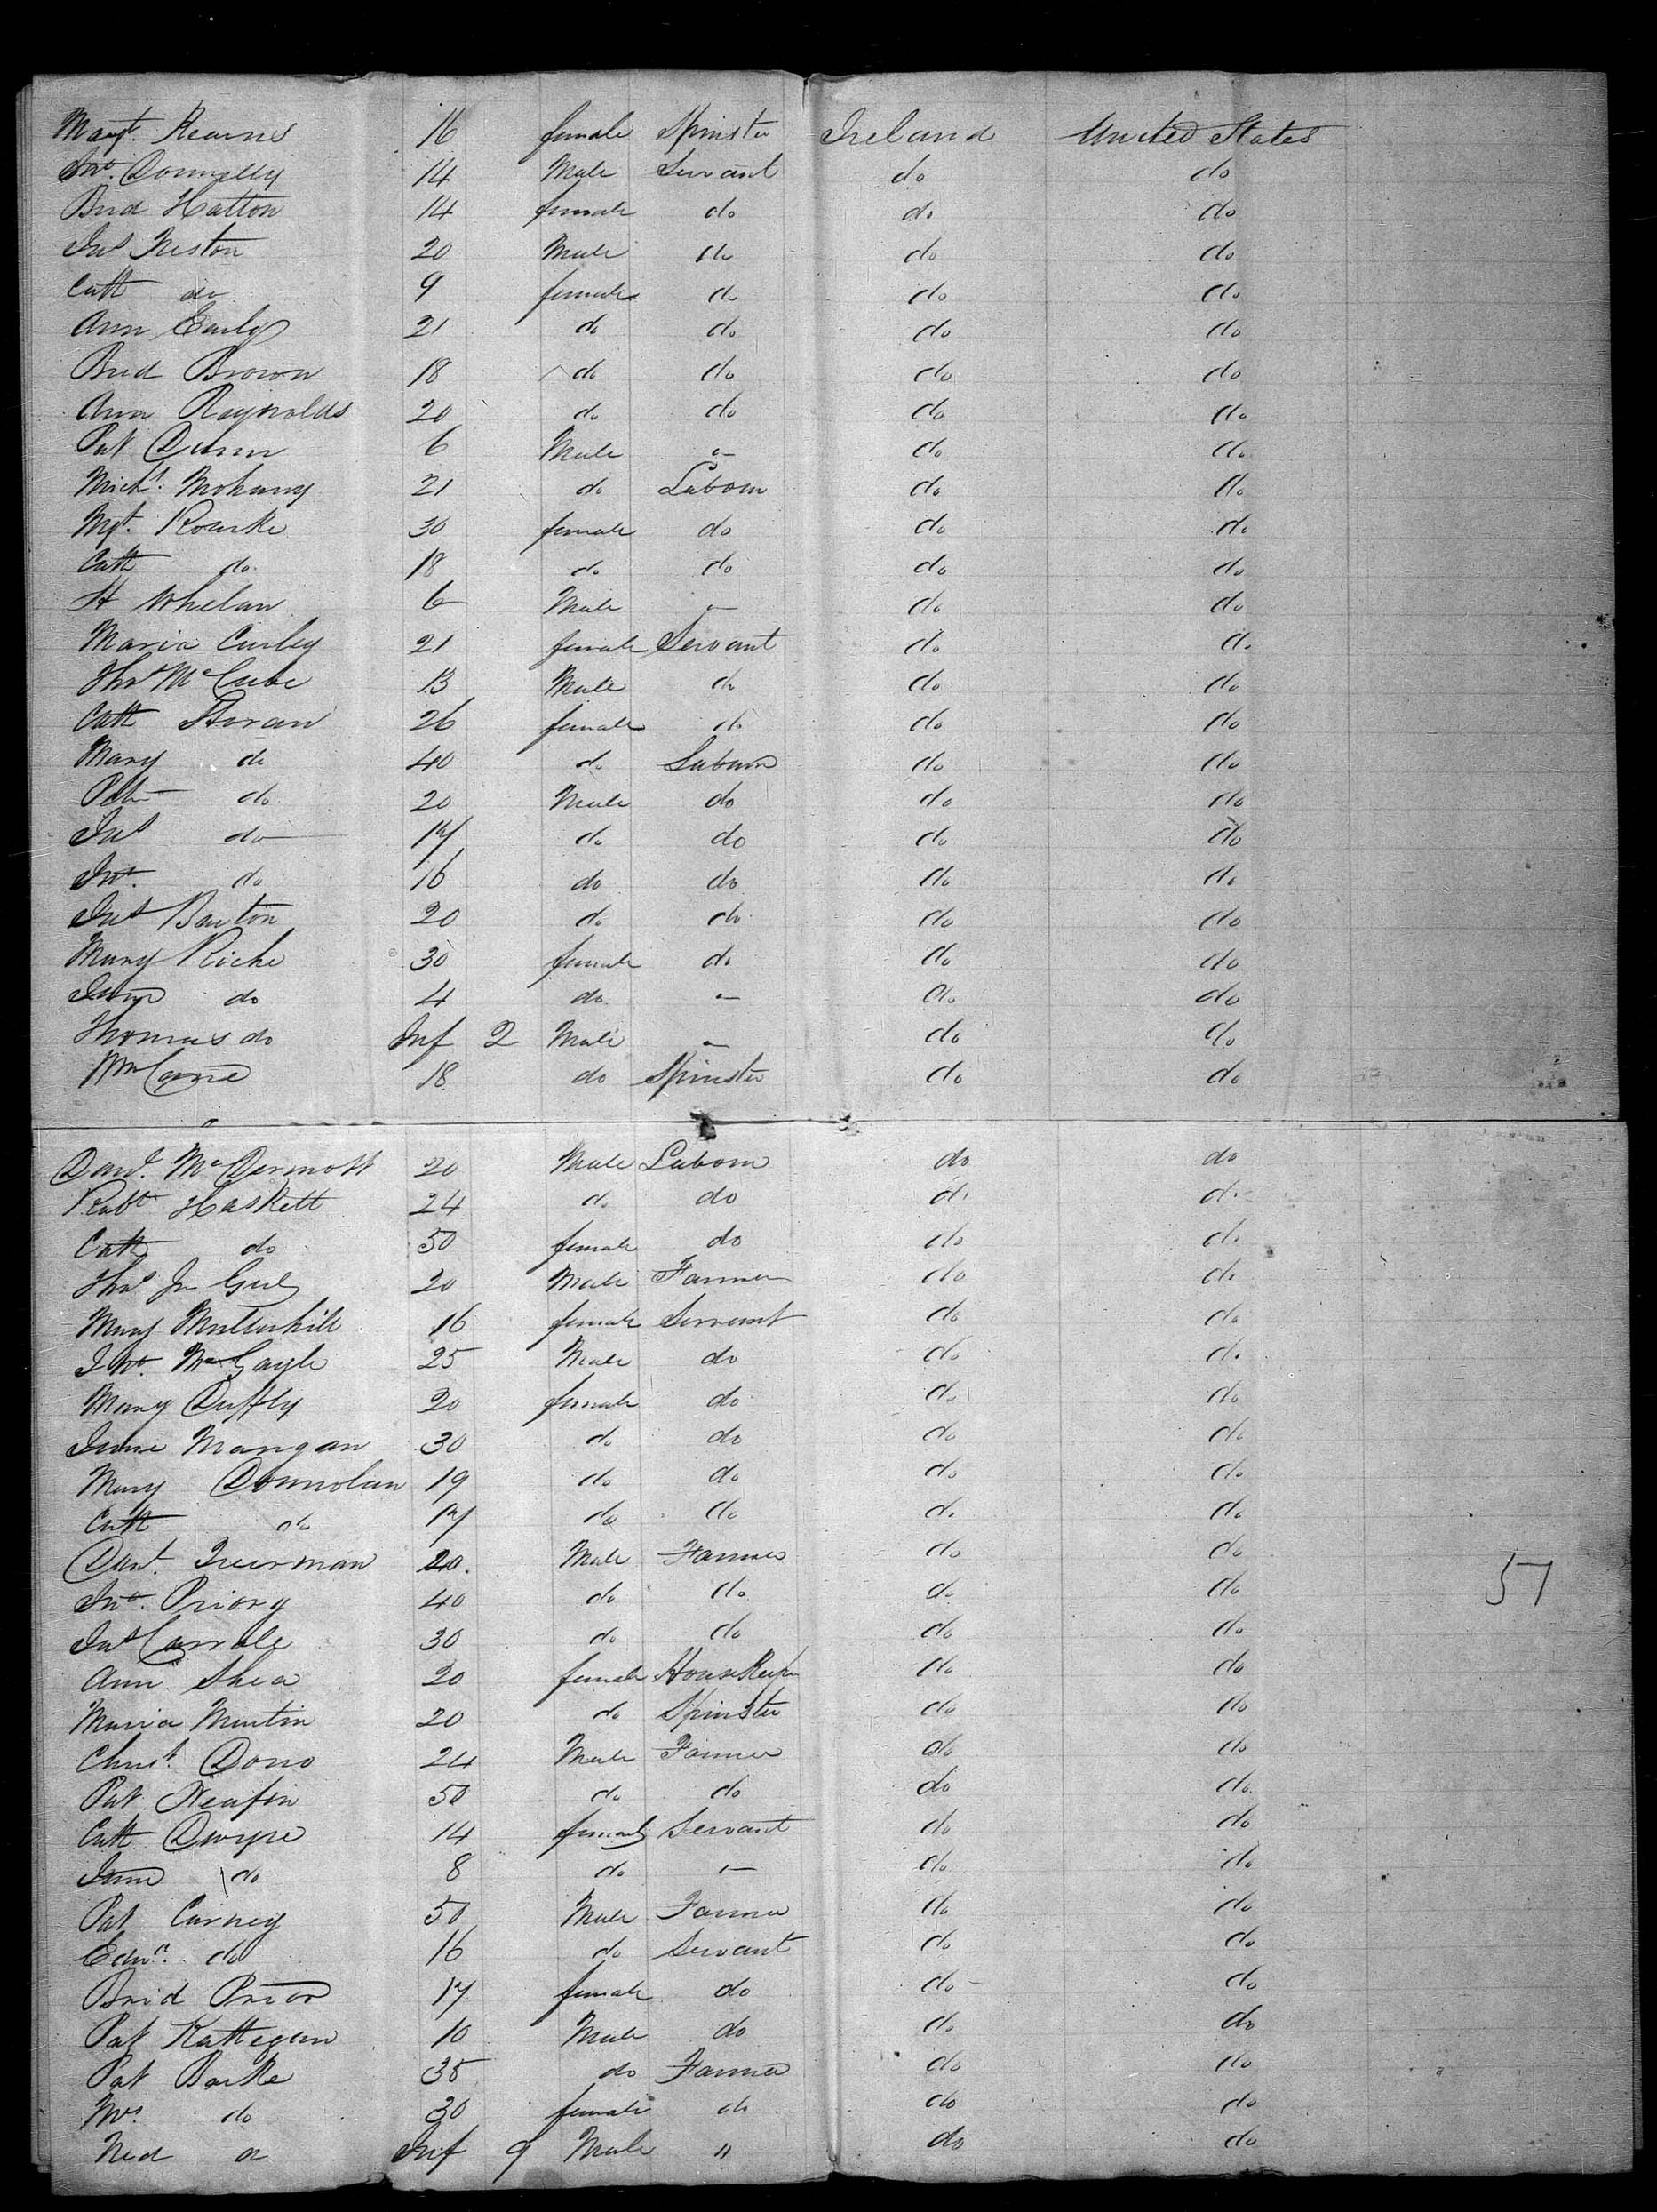 Margt. Kearns 16 female Spinster Ireland United States
Jno. Donnelly 14 Male Servant do do
Brid Hatton 14 female do do do
Jas 20 Male do do do
Cath do 9 female do do do
Ann Early 21 do do do do
Brid Brown 18 do do do do
Ann Reynolds 20 do do do do
Pat Dunn 6 Male " do do
Michl. Mohany 21 do Labour do do
Mgt. Rourke 30 female do do do
Cath do 18 do do do do
H Whelan 6 Male " do do
Maria Curley 21 female Servant do do
Thos McCube 13 Male do do do
Cath Horan 26 female do do do
Mary do 40 do Labour do do
Peter do 20 Male do do do
Jas do 17 do do do do
Jno. do 16 do do do do
Jas Barton 20 do do do do
Mary Riche 30 female do do do
Jane do 4 do " do do
Thomas do Inf 2 Male " do do
Wm 18 do Spinster do do
Danl. McDermott 20 Male Labour do do
Robt Haskett 24 do do do do
Cath do 50 female do do do
Thos 20 Male Farmer do do
Mary 16 female Servant do do
Jno. McGayle 25 Male do do do
Mary Duffly 20 female do do do
Jane Mangan 30 do do do do
Mary Donnolan 19 do do do do
Cath do 17 do do do do
Danl. 20. Male Farmer do do
Jno. Priory 40 do do do do
57
Jas Carrole 30 do do do do
Ann Shea 20 female HouseKeeper do do
Maria Martin 20 do Spinster do do
Christ. Dono 24 Male Farmer do do
Pat 50 do do do do
Cath Dwyre 14 female Servant do do
Jane do 8 do " do do
Pat Carney 50 Male Farmer do do
Edwd. do 16 do Servant do do
Brid Prior 17 female do do do
Pat Kattegan 10 Male do do do
Pat Barke 35 do Farmer do do
Mrs. do 30 female do do do
Ned do Inf 9 Male " do do